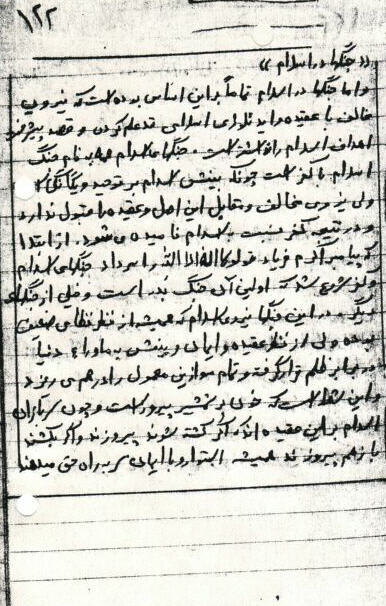 ۱۲۲
«جنگها در اسلام»
و اما جنگها در اسلام تماماً بر این اساس بوده است که نیروی
مخالف با عقیده و ایدئولوژی اسلامی قد علم کردن و قصد پیشرفت
اهداف اسلام را داشته است. جنگهای اسلام همه به نام جنگ
اسلام با کفر است چونکه بینش اسلام بر توحید و یگانگی
ولی نیروی مخالف و مقابل این اصل و عقیده را قبول ندارد
و در نتیجه کفر نسبت به اسلام نامیده می‌شود. از ابتدا
که پیامبر اکرم فریاد قولوا لا اله الا الله را سر داد جنگهای اسلام
و کفر شروع شد که اولین آن جنگ بدر است و خیلی از جنگهای
دیگر. در این جنگها نیروی اسلام که همیشه از نظر نظامی ضعیف
بوده ولی از نظر عقیده و ایمان و بینش به ماوراء دنیا
در برابر ظلم قرار گرفته و تمام موازین معمول را در هم می ریزد
و این شعار است که خون بر شمشیر پیروز است و چون سربازان
اسلام بر این عقیده اند که اگر کشته شوند پیروزند و اگر بکشند
باز هم پیروزند همیشه استوار و با ایمان سر به راه حق میدهند